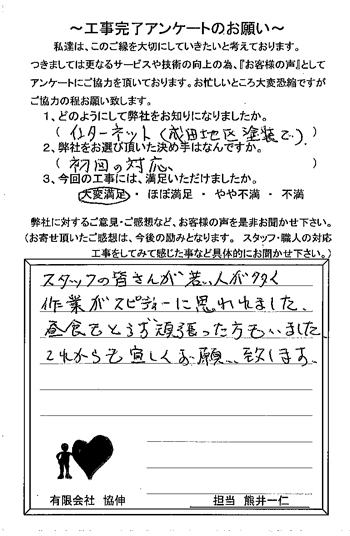 ～工事完了アンケートのお願い～
私達は、このご縁を大切にしていきたいと考えております。
つきましては更なるサービスや技術の向上の為、『お客様の声』として
アンケートにご協力を頂いております。お忙しいところ大変恐縮ですが
ご協力の程お願い致します。
1、どのようにして弊社をお知りになりましたか。
（ インターネット（成田地区 塗装で） ）
2、弊社をお選び頂いた決め手はなんですか。
（ 初回の対応、 ）
3、今回の工事には、満足いただけましたか。
大変満足 ・ ほぼ満足 ・ やや不満 ・ 不満
弊社に対するご意見・ご感想など、お客様の声を是非お聞かせ下さい。
（お寄せ頂いたご感想は、今後の励みとなります。 スタッフ・職人の対応
工事をしてみて感じた事など具体的にお聞かせ下さい。）
スタッフの皆さんが若い人が多く
作業がスピディーに思われました、
昼食もとらず頑張った方もいました
これからも宜しくお願い致します。
有限会社 協伸
担当 熊井一仁